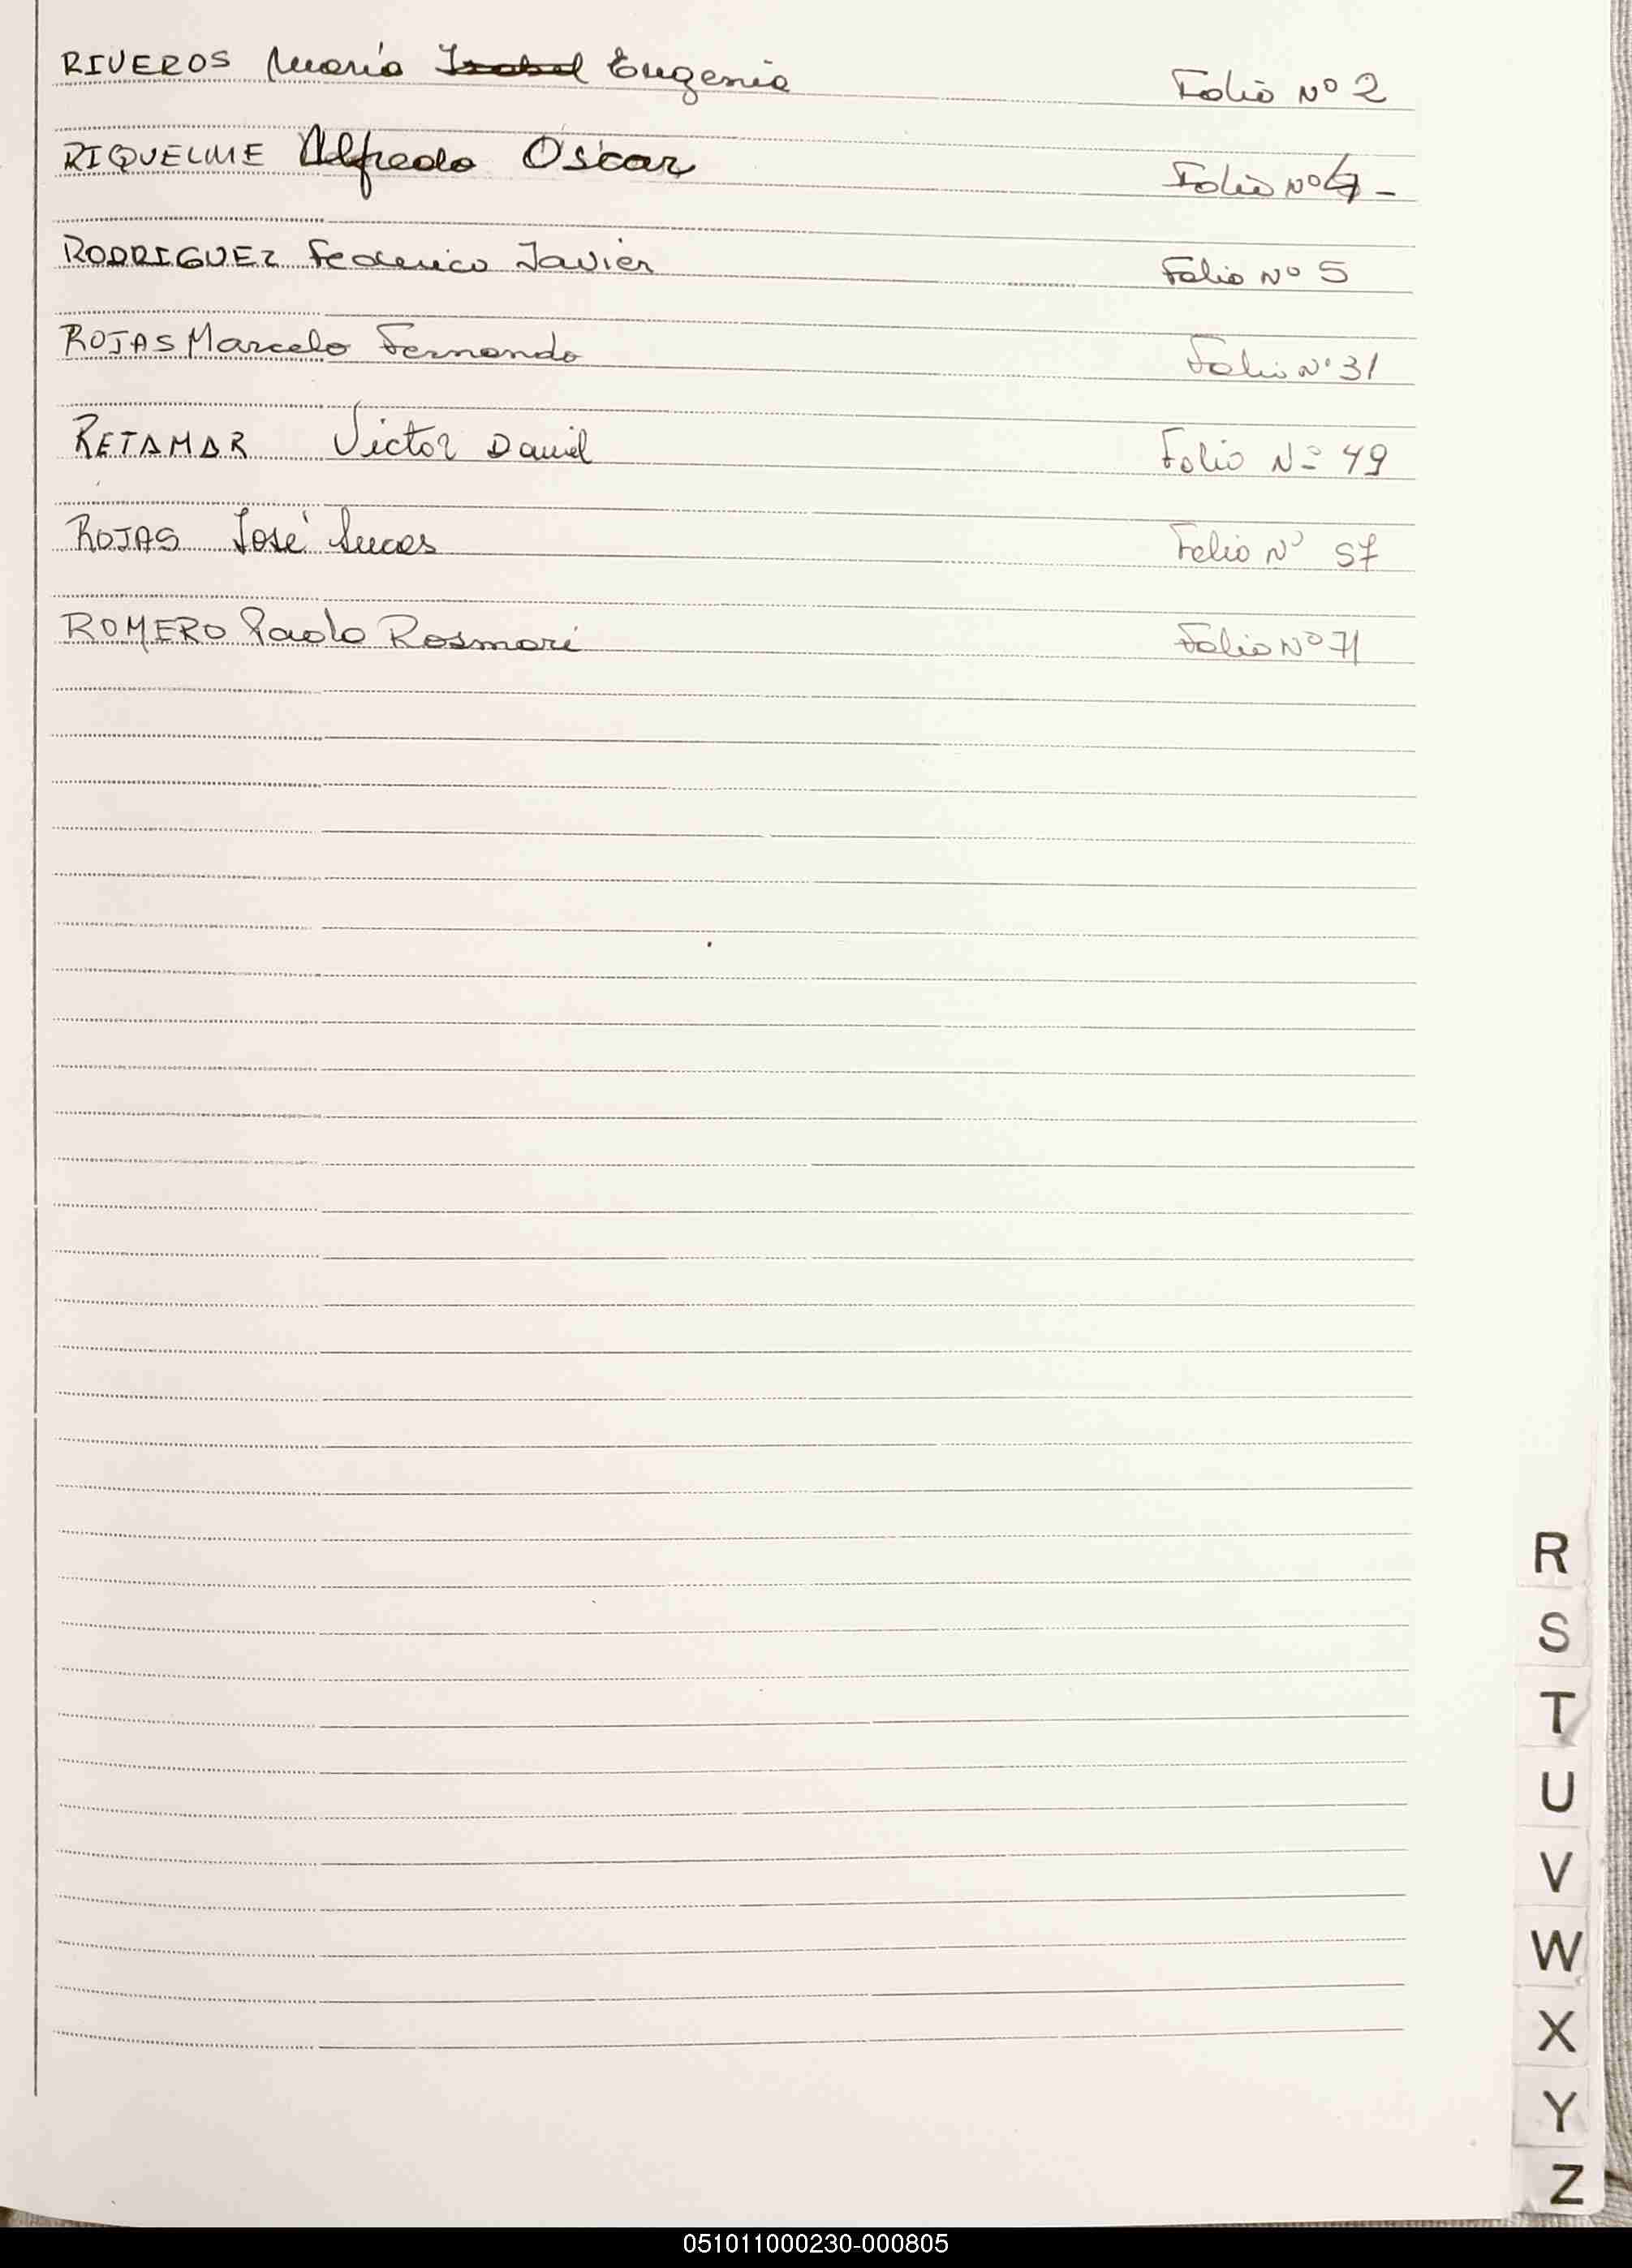 RIVEROS María Isabel Eugenia Folio Nº 2
RIQUELME Alfredo Oscar Folio Nº 4 -
RODRIGUEZ Federico Javier Folio Nº 5
ROJAS Marcelo Fernando Folio Nº 31
RETAMAR Victor Daniel Folio Nº 49
ROJAS José Lucas Folio Nº 57
ROMERO Paola Rosmari Folio Nº 71
R
S
T
U
V
W
X
Y
Z
051011000230-000805